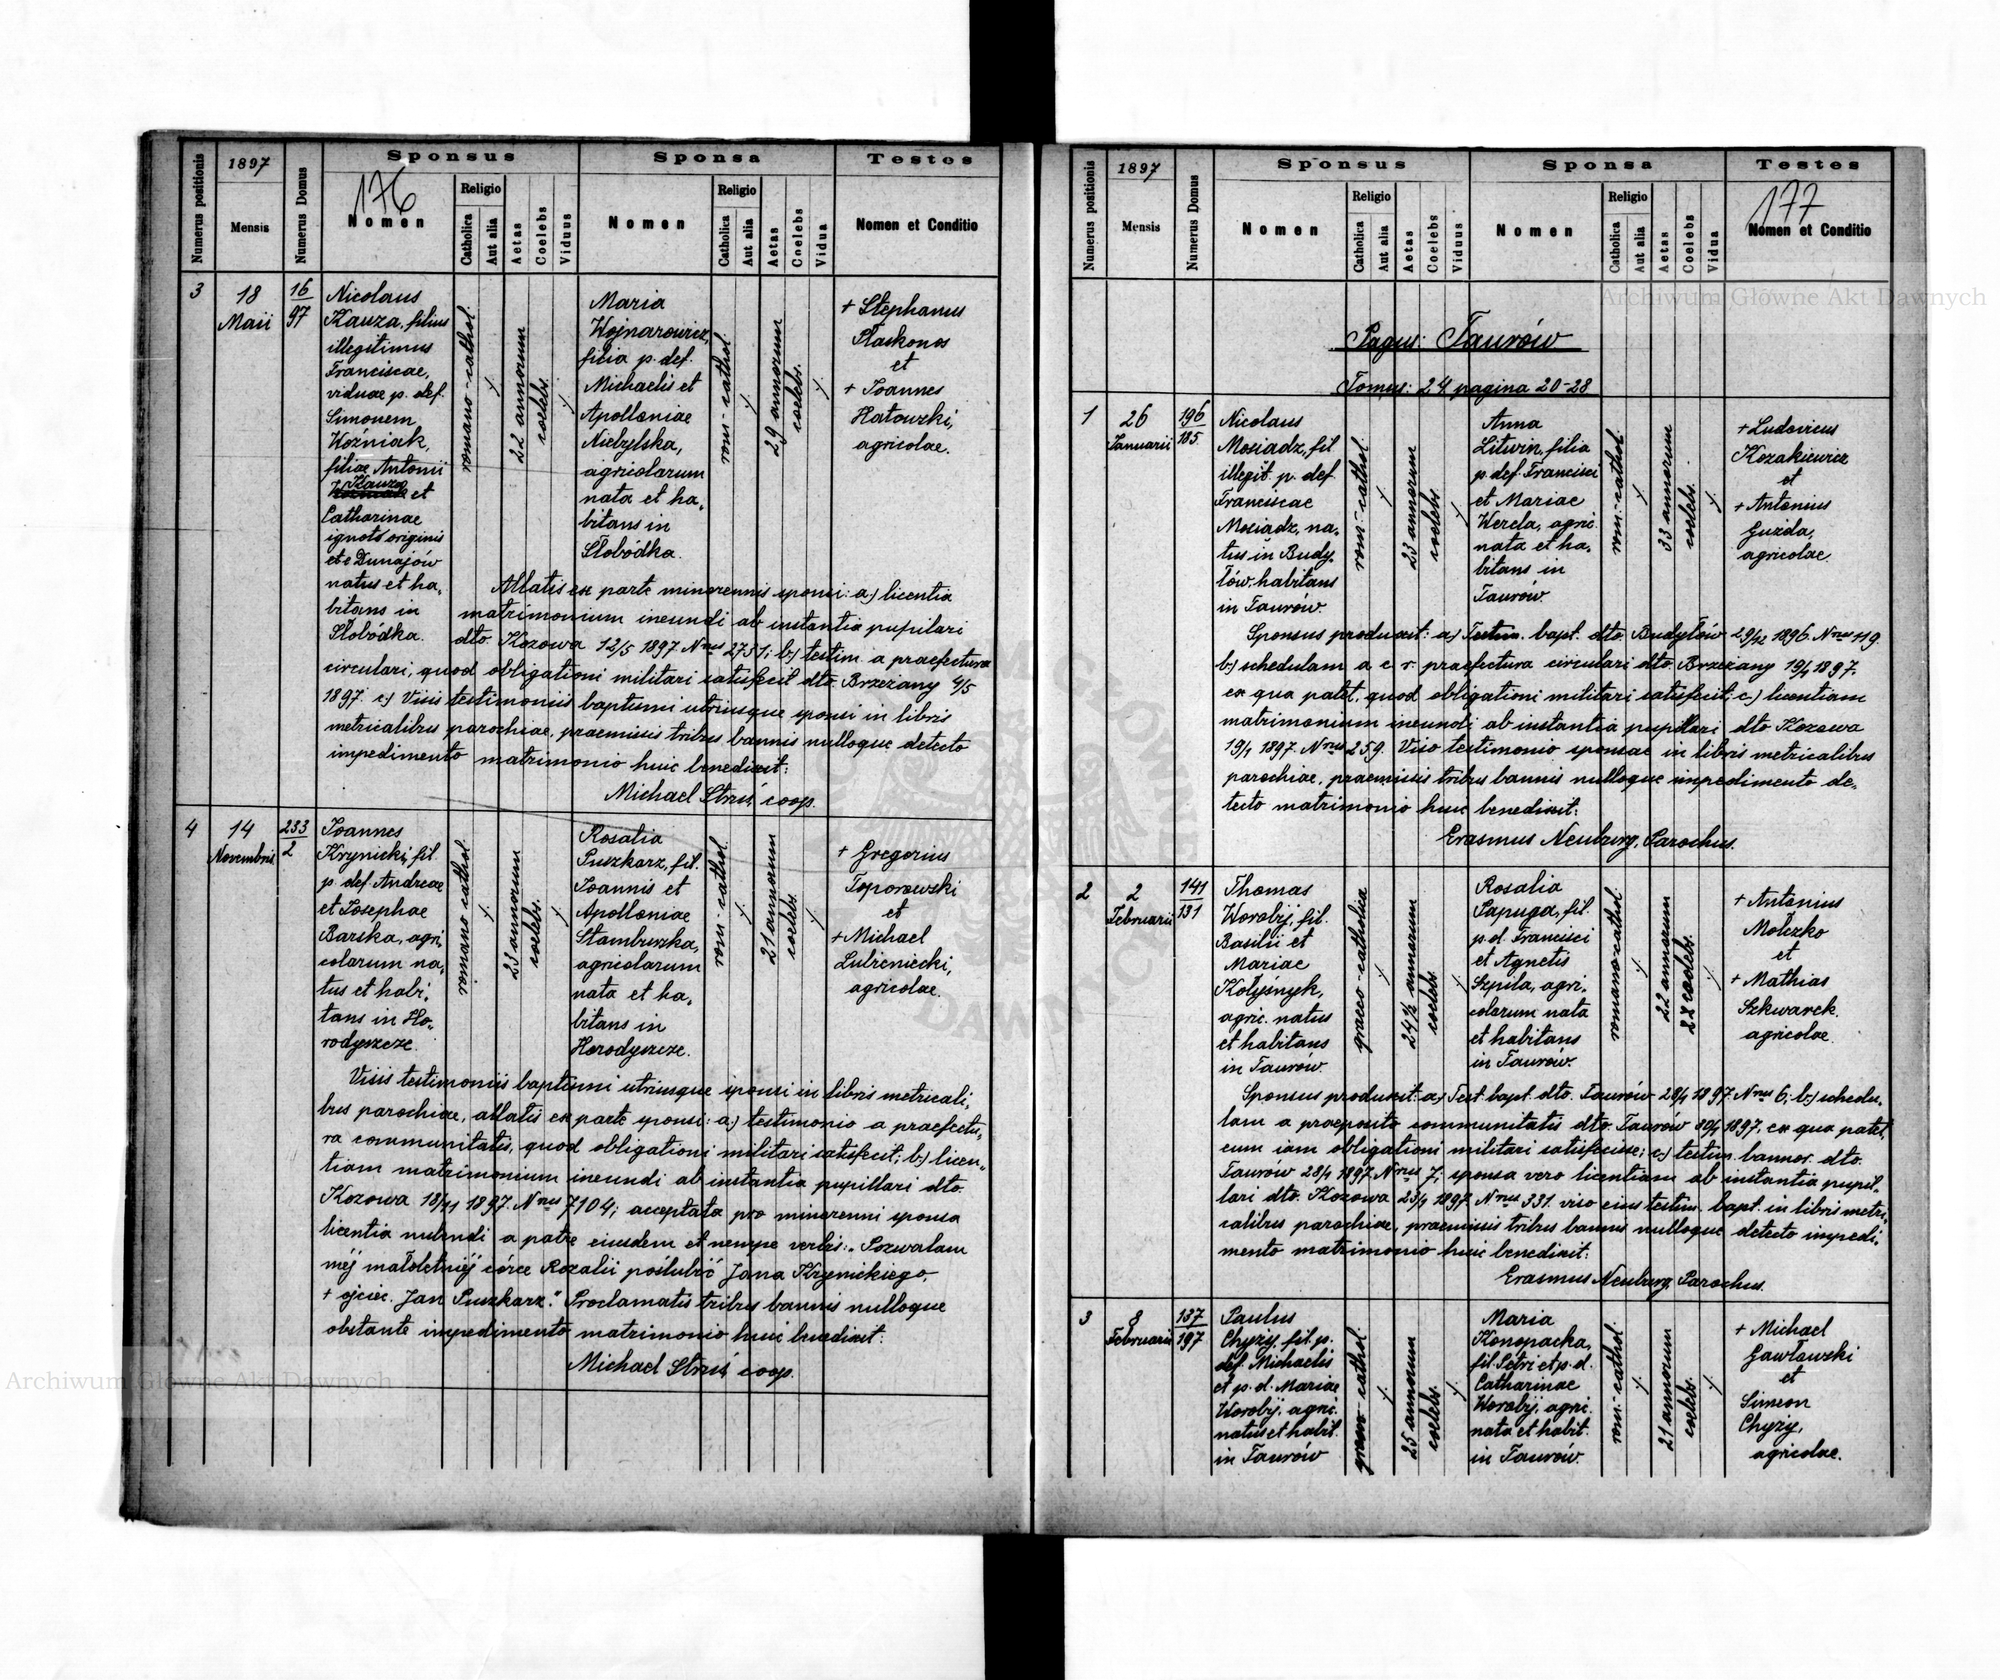 Numerus positionis
1897
Mensis
Numerus Domus
Sponsus
176
Nomen
Religio
Catholica
Aut alia
Aetas
Coelebs
Viduus
Sponsa
Nomen
Religio
Catholica
Aut alia
Aetas
Coelebs
Vidua
Testes
Nomen et Conditio
3
18
Maii
16
97
Nicolaus
Kauza, filius
illegitimus
Franciscae,
viduae p. def.
Simonem
Woźniak,
filiae Antonii
Kauza et
Catharinae
ignoto originis
et e Dunajów
natus et ha,
bitans in
Słobódka.
romano-cathol.
22 annorum
coelebs.
Maria
Wojnarowicz,
filia p. def.
Michaelis et
Apolloniae
Niebylska,
agricolarum
nata et ha,
bitans in
Słobódka.
rom-cathol.
29 annorum
coelebs.
+ Stephanus
Płaskonos
et
+ Joannes
Hałowski,
agricolae.
Allatis ex parte minorennis sponsi: a.) licentia
matrimonium ineundi ab instantia pupilari
dto. Kozowa 12/5 1897 Nrus 2751; b.) testim. a praefectura
circulari, quod obligationi militari satisfecit dto. Brzeżany 4/5
1897. c.) Visis testimoniis baptismi utriusque sponsi in libris
metricalibus parochiae, praemissis tribus bannis nulloque detecto
impedimento matrimonio huic benedixit:
Michael Struś coop.
4
14
Novembris
233
2
Joannes
Krynicki, fil.
p. def. Andreae
et Josephae
Barska, agri,
colarum na,
tus et habi,
tans in Ho,
rodyszcze.
romano cathol.
23 annorum
coelebs.
Rosalia
Puszkarz, fil.
Joannis et
Apolloniae
Stambuzka,
agricolarum
nata et ha,
bitans in
Horodyszcze.
rom-cathol.
21 annorum
coelebs.
+ Gregorius
Toporowski
et
+ Michael
Lubieniecki,
agricolae.
Visis testimoniis baptismi utriusque sponsi in libris metricali,
bus parochiae, allatis ex parte sponsi: a.) testimonio a praefectu,
ra communitatis, quod obligationi militari satisfecit; b.) licen,
tiam matrimonium ineundi ab instantia pupillari dto.
Kozowa 18/11 1897. Nrus 7104; acceptata pro minorenni sponsa
licentia nubendi a patre eiusdem et nempe verbis: „Pozwalam
méj małoletniéj córce Rozalii poślubić Jana Krynickiego,
+ ojciec. Jan Puszkarz." Proclamatis tribus bannis nulloque
obstante impedimento matrimonio huic benedixit:
Michael Struś coop.
Numerus positionis
1897
Mensis
Numerus Domus
Sponsus
Nomen
Religio
Catholica
Aut alia
Aetas
Coelebs
Viduus
Sponsa
Nomen
Religio
Catholica
Aut alia
Aetas
Coelebs
Vidua
Testes
177
Nomen et Conditio
Pagus: Taurów
Tomus: 24 pagina 20-28
1
26
Januarii
196
185
Nicolaus
Mosiadz, fil
illegit. p. def
Franciscae
Mosiadz, na,
tus in Budy,
łów, habitans
in Taurów.
rom-cathol.
23 annorum
coelebs.
Anna
Litwin, filia
p. def. Francisci
et Mariae
Wercla, agric.
nata et ha,
bitans in
Taurów.
rom-cathol.
33 annorum
coelebs.
+ Ludovicus
Kozakiewicz
et
+ Antonius
Guzda,
agricolae.
Sponsus produxit: a.) Testim. bapt. dto. Budyłów 29/12 1896. Nrus 119.
b.) schedulam a c. r. praefectura circulari dto. Brzeżany 19/1 1897.
ex qua patet, quod obligationi militari satisfecit: c.) licentiam
matrimonium ineundi ab instantia pupillari dto Kozowa
19/1 1897. Nrus 259. Viso testimonio sponsae in libris metricalibus
parochiae, praemissis tribus bannis nulloque impedimento de,
tecto matrimonio huic benedixit:
Erasmus Neuburg, Parochus.
2
2
Februarii
141
131
Thomas
Worobij, fil.
Basilii et
Mariae
Kołysnyk,
agric. natus
et habitans
in Taurów
graeco-catholica
24½ annorum
coelebs.
Rosalia
Papuga, fil.
p. d. Francisci
et Agnetis
Szpila, agri,
colarum nata
et habitans
in Taurów.
romano-cathol.
22 annorum
22 coelebs.
+ Antonius
Mołczko
et
+ Mathias
Szkwarek.
agricolae.
Sponsus produxit: a.) Test. bapt. dto. Taurów 28/1 1897. Nrus 6; b.) schedu,
lam a praeposito communitatis dto. Taurów 30/1 1897, ex qua patet,
eum iam obligationi militari satisfecisse; c.) testim. bannor. dto.
Taurów 28/1 1897. Nrus 7; sponsa vero licentiam ab instantia pupil,
lari dto. Kozowa 23/1 1897. Nrus 331. viso eius testim. bapt. in libris metri,
calibus parochiae, praemissis tribus bannis nulloque detecto impedi,
mento matrimonio huic benedixit:
Erasmus Neuburg Parochus.
3
8
Februarii
137
197
Paulus
Chyży, fil. p.
def. Michaelis
et p. d. Mariae
Worobij, agric.
natus et habit.
in Taurów
graeco-cathol.
25 annorum
coelebs.
Maria
Konopacka,
fil. Petri et p. d.
Catharinae
Worobij, agric.
nata et habit.
in Taurów.
rom.-cathol.
21 annorum
coelebs.
+ Michael
Gawławski
et
Simeon
Chyży,
agricolae.
Archiwum Główne Akt Dawnych
Archiwum Główne Akt Dawnych